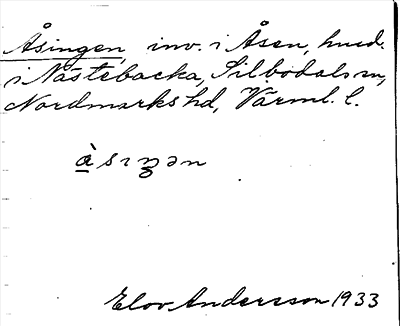 Åsingen, inv. i Åsen, hmd.
i Nästebacka, Silbodals sn,
Nordmarks hd, Värml. l.
å̀sıŋən
Elov Andersson 1933